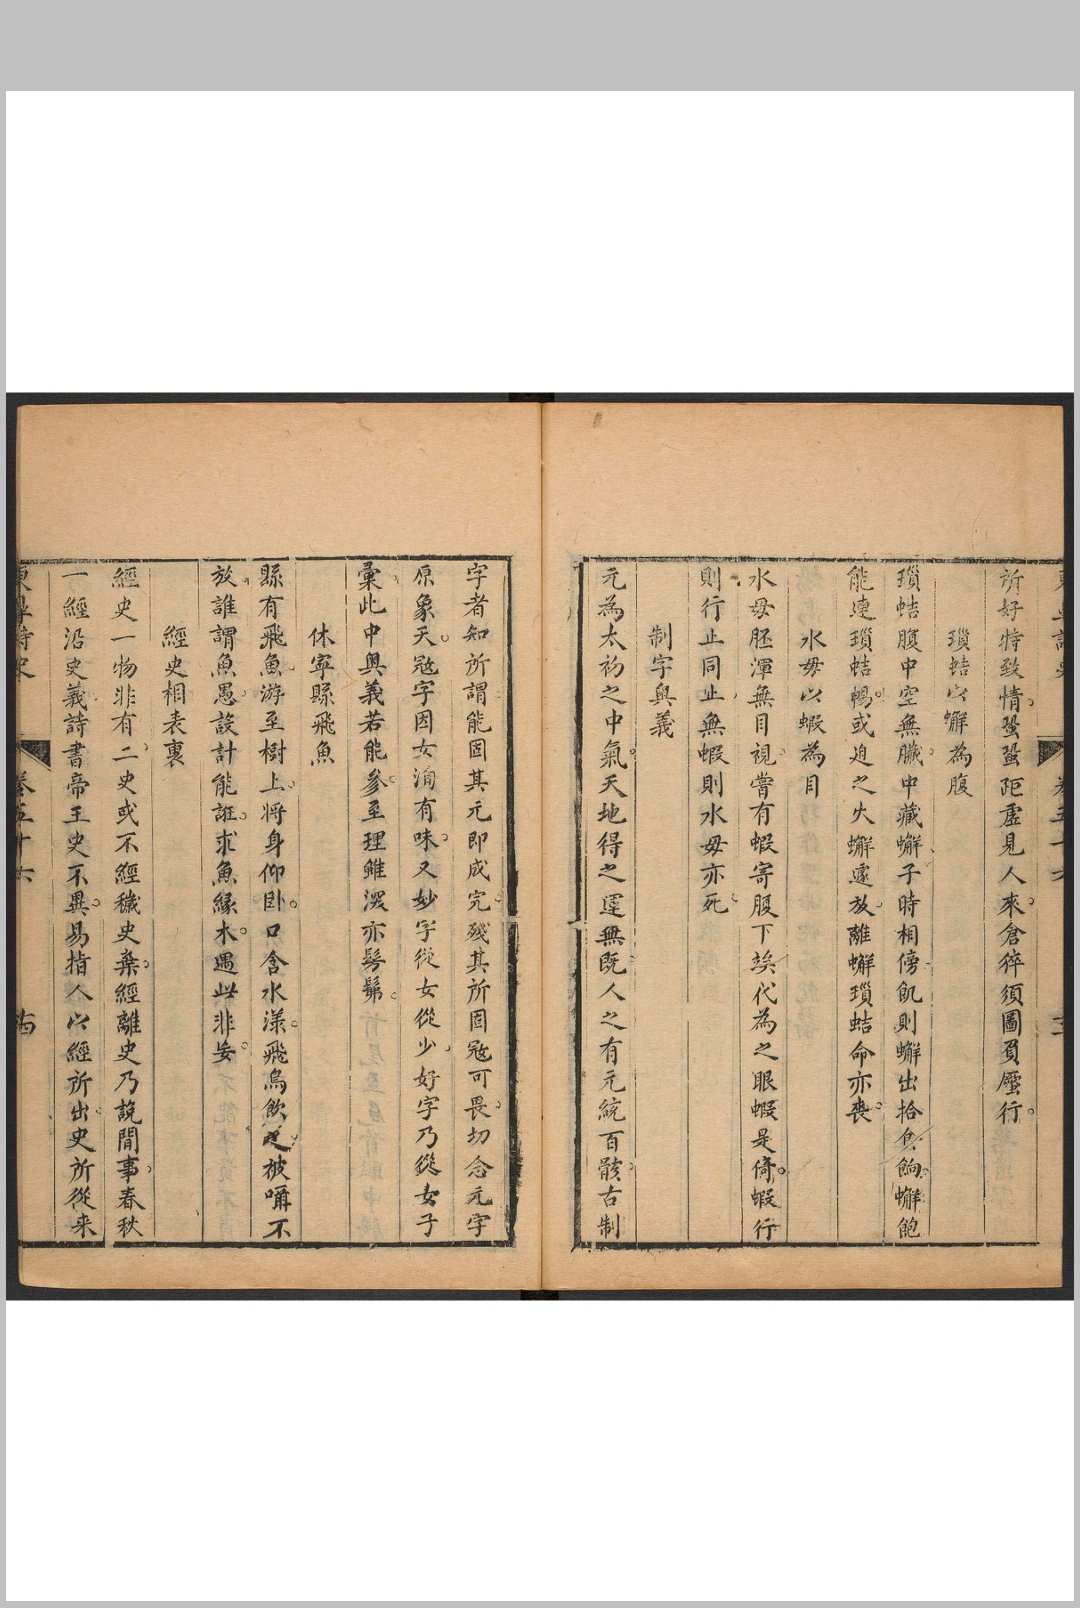 所好特致情蛩蛩距虛見人來倉猝須圖負壓行
瑣蛣以蠏為腹
瑣蛣腹中空無臟中藏蠏子時相傍飢則蠏出拾食餉蠏飽
能連瑣蛣暢或迫之火蠏遽放離蠏瑣蛣命亦喪
水母以蝦為目
水母胚渾無目視嘗有蝦寄腹下埃代為之眼蝦是倚蝦行
則行止同止無蝦則水母亦死
制字奥義
元為太初之中氣天地得之運無既人之有元統百骸古制
字者知所謂能固其元即成完殘其所固冦可畏切念元字
原象天冦字因女淪有味又妙字從女從少好字乃從女子
彙此中奥義若能參至理雖淺亦髣髴
休寧縣飛魚
縣有飛魚游至樹上將身仰卧口含水漾飛鳥飲之被囓不
放誰謂魚愚設計能誑求魚緣木遇此非妄
經史相表裏
經史一物非有二史或不經穢史棄經離史乃說閒事春秋
一經沿史義詩書帝王史不異易指人以經所出史所從来
卷五十六